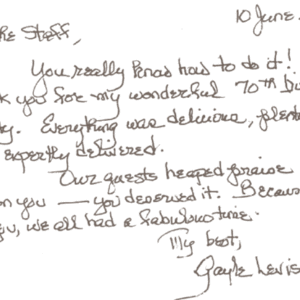 10 June.
he Staff,
You really know how to do it!
k you for my wonderful 70th Bi
ty. Everything was delicious, plent
expertly delivered.
Our guests heaped praise
on you — you deserved it. Becau
you, we all had a fabulous time.
My best,
Gayle Lewis